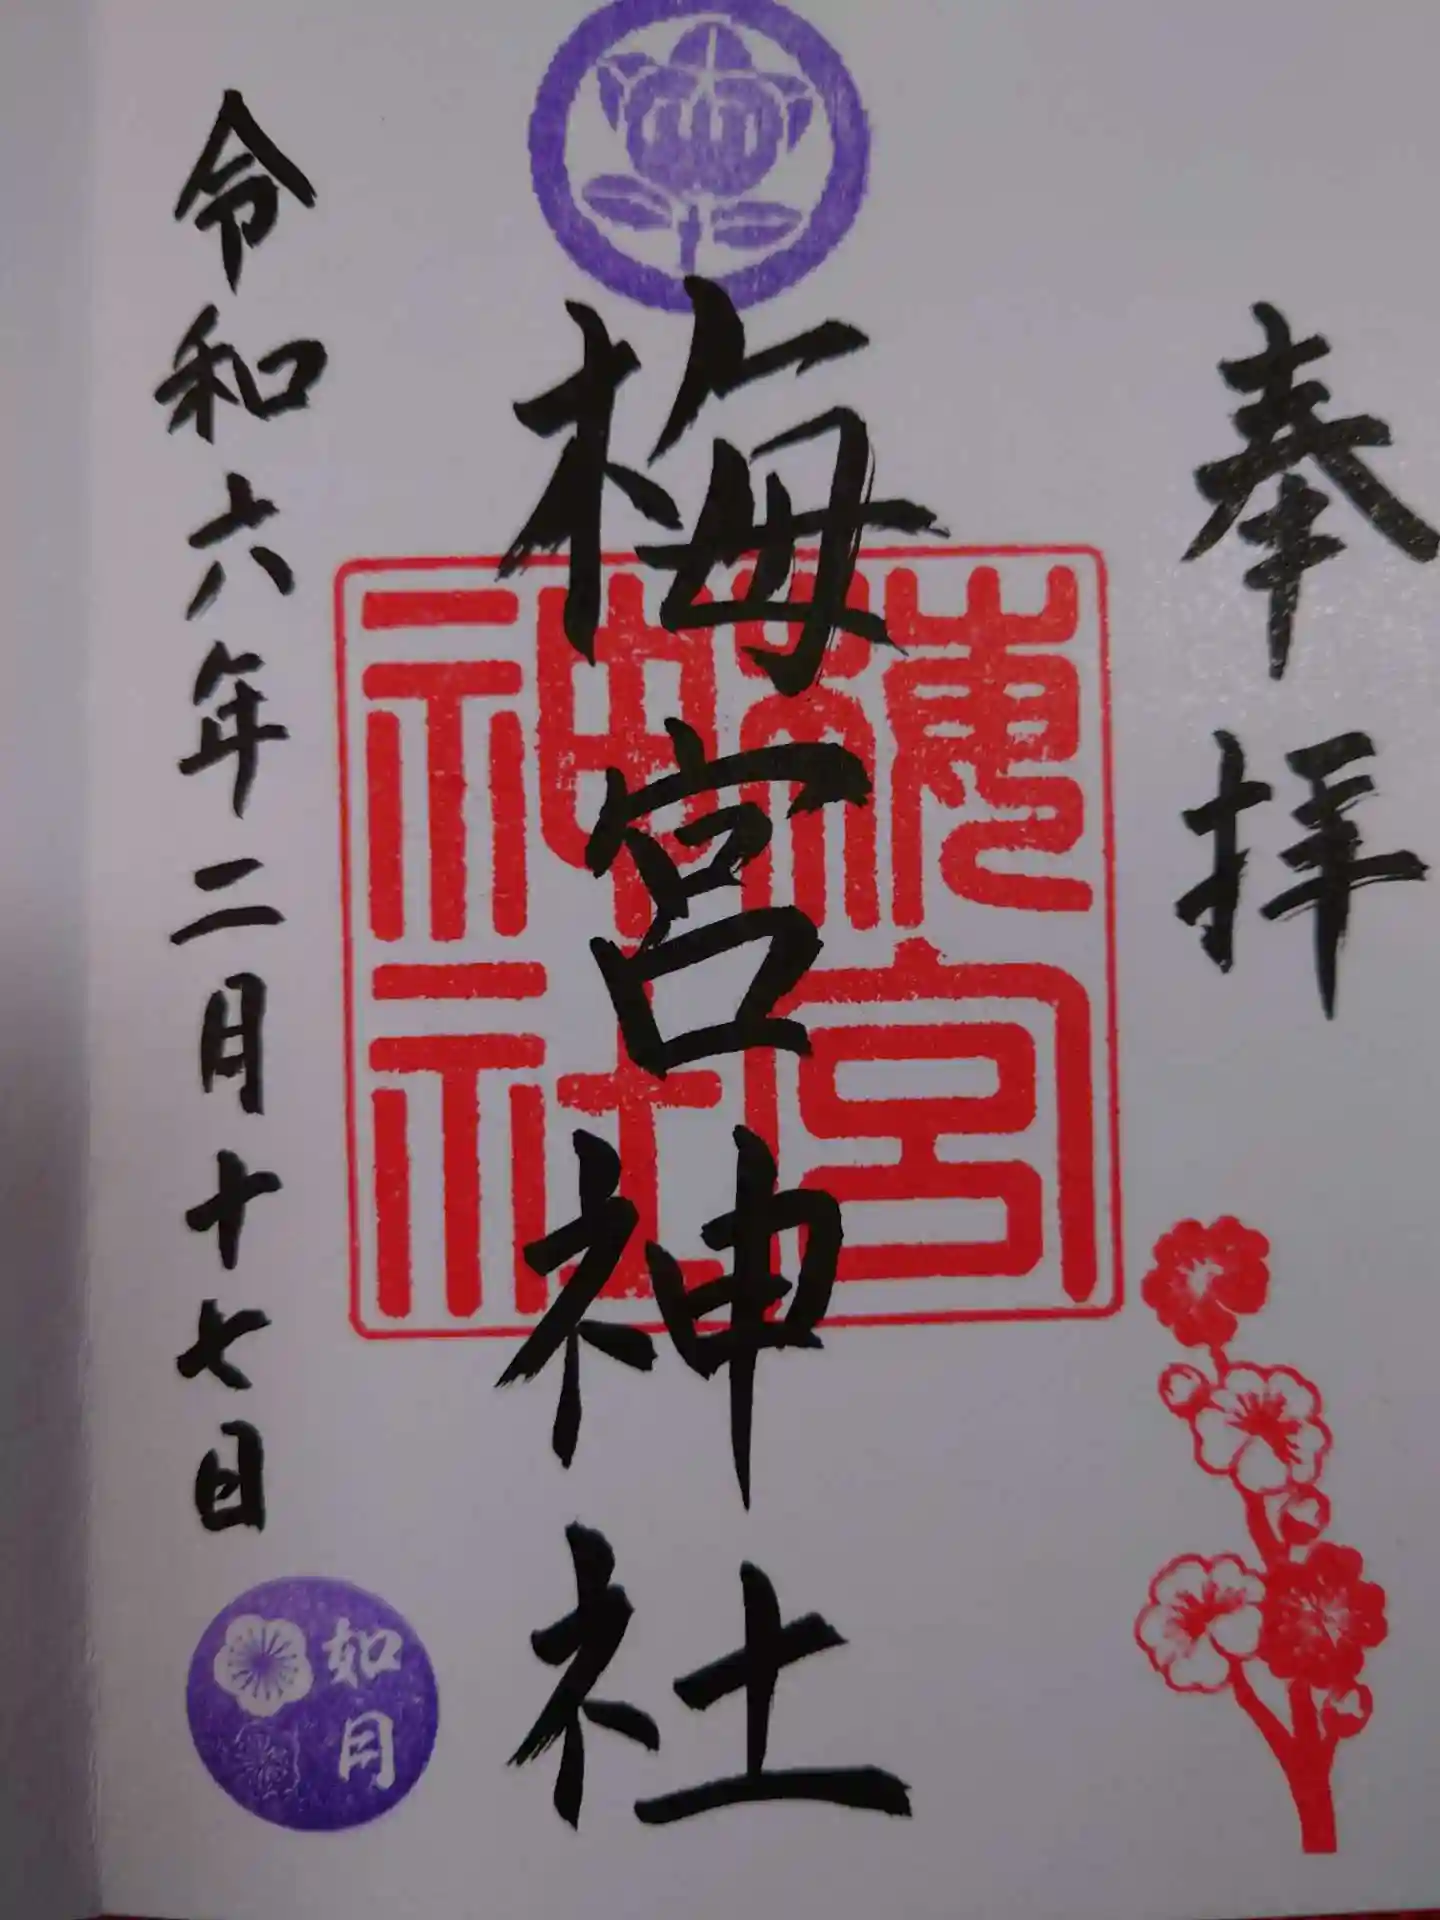 奉拝
梅宮神社
令和六年二月十七日
如月